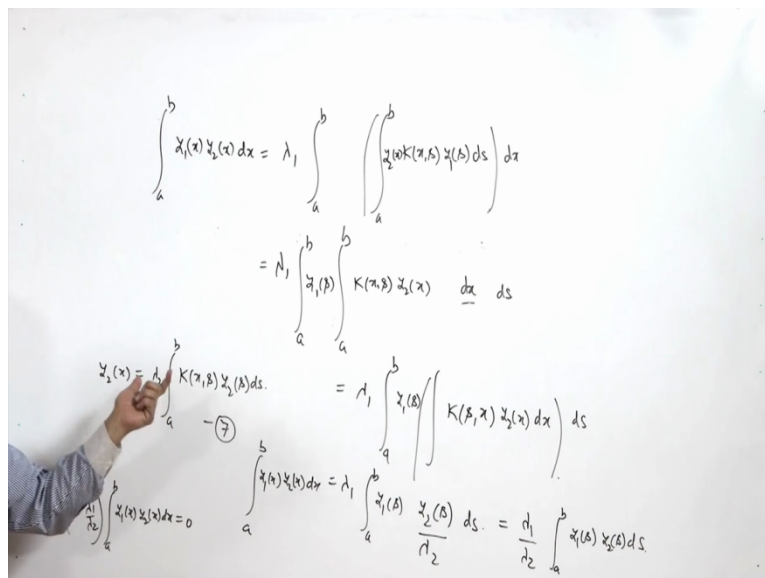 ∫_a^b y₁(x) y₂(x) dx = λ₁ ∫_a^b ( ∫_a^b y₂(x) K(x,s) y₁(s) ds ) dx
= λ₁ ∫_a^b y₁(s) ∫_a^b K(x,s) y₂(x) dx ds
y₂(x) = λ₂ ∫_a^b K(x,s) y₂(s) ds. –⑦
= λ₁ ∫_a^b y₁(s) ( ∫ K(s,x) y₂(x) dx ) ds
λ₁/λ₂ ) ∫_a^b y₁(x) y₂(x) dx = 0
∫_a^b y₁(x) y₂(x) dx = λ₁ ∫_a^b y₁(s) y₂(s)/λ₂ ds. = λ₁/λ₂ ∫_a^b y₁(s) y₂(s) ds.